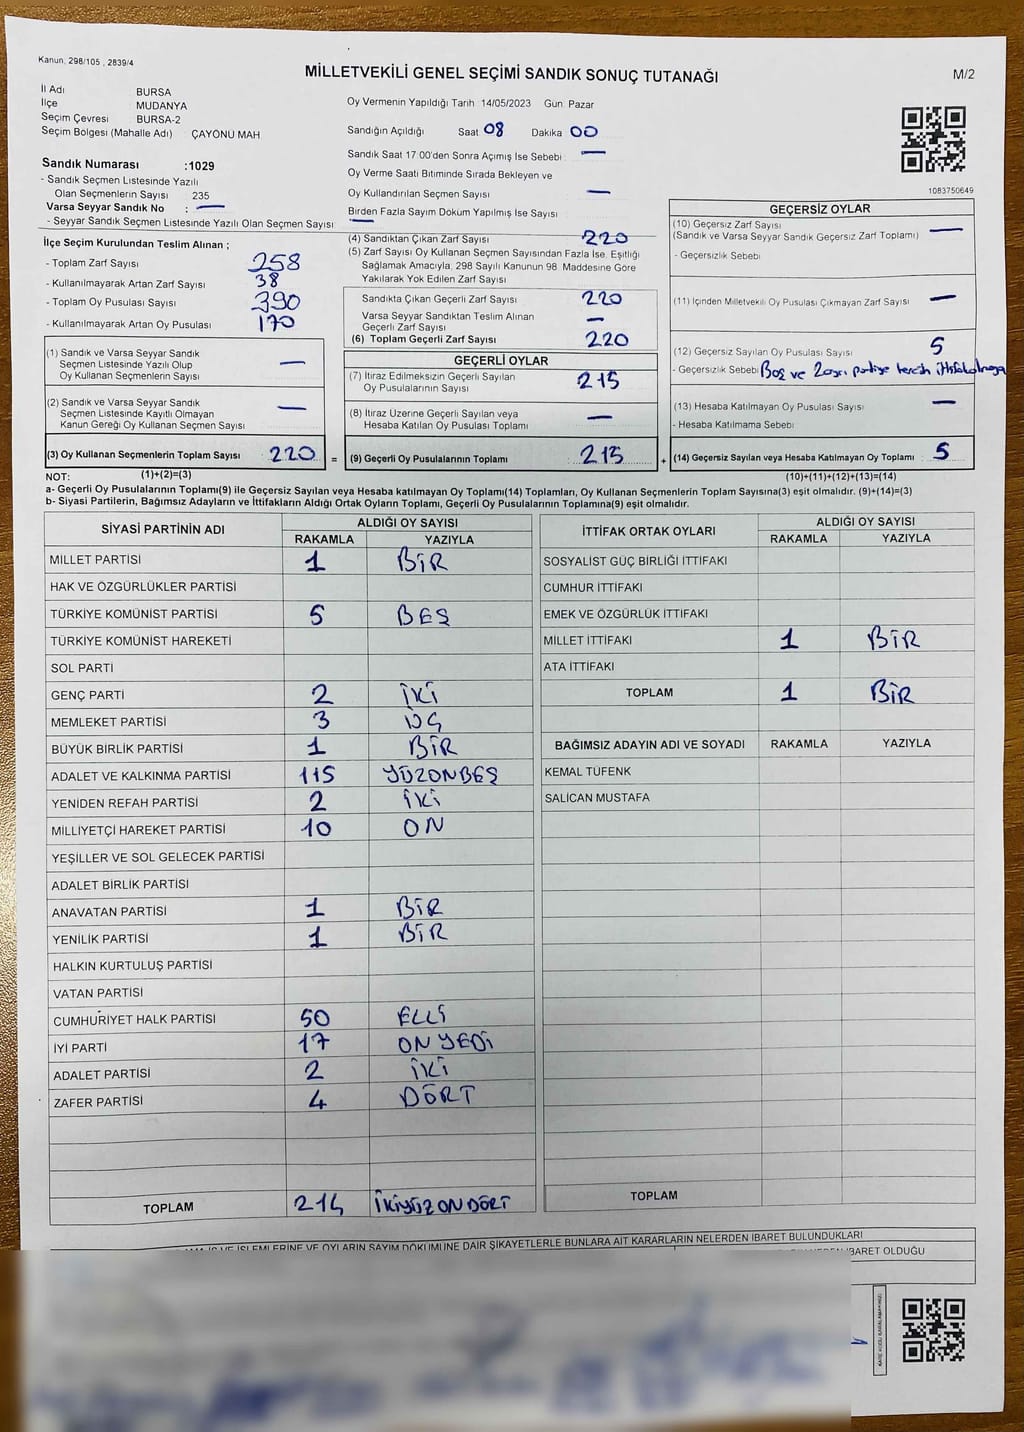 Kanun, 298/105 , 2839/4
MİLLETVEKİLİ GENEL SEÇİMİ SANDIK SONUÇ TUTANAĞI
M/2
İl Adı BURSA
İlçe MUDANYA
Seçim Çevresi BURSA-2
Seçim Bölgesi (Mahalle Adı) ÇAYONU MAH
Sandık Numarası :1029
- Sandık Seçmen Listesinde Yazılı
Olan Seçmenlerin Sayısı 235
Varsa Seyyar Sandık No : —
- Seyyar Sandık Seçmen Listesinde Yazılı Olan Seçmen Sayısı —
İlçe Seçim Kurulundan Teslim Alınan ;
- Toplam Zarf Sayısı 258
- Kullanılmayarak Artan Zarf Sayısı 38
- Toplam Oy Pusulası Sayısı 390
- Kullanılmayarak Artan Oy Pusulası 170
(1) Sandık ve Varsa Seyyar Sandık
Seçmen Listesinde Yazılı Olup
Oy Kullanan Seçmenlerin Sayısı —
(2) Sandık ve Varsa Seyyar Sandık
Seçmen Listesinde Kayıtlı Olmayan
Kanun Gereği Oy Kullanan Seçmen Sayısı —
(3) Oy Kullanan Seçmenlerin Toplam Sayısı 220 =
Oy Vermenin Yapıldığı Tarih 14/05/2023 Gün Pazar
Sandığın Açıldığı Saat 08 Dakika 00
Sandık Saat 17:00'den Sonra Açımış İse Sebebi : —
Oy Verme Saati Bitiminde Sırada Bekleyen ve
Oy Kullandırılan Seçmen Sayısı —
Birden Fazla Sayım Döküm Yapılmış İse Sayısı
(4) Sandıktan Çıkan Zarf Sayısı 220
(5) Zarf Sayısı Oy Kullanan Seçmen Sayısından Fazla İse, Eşitliği
Sağlamak Amacıyla, 298 Sayılı Kanunun 98 Maddesine Göre
Yakılarak Yok Edilen Zarf Sayısı
Sandıkta Çıkan Geçerli Zarf Sayısı 220
Varsa Seyyar Sandıktan Teslim Alınan
Geçerli Zarf Sayısı —
(6) Toplam Geçerli Zarf Sayısı 220
GEÇERLİ OYLAR
(7) İtiraz Edilmeksizin Geçerli Sayılan
Oy Pusulalarının Sayısı 215
(8) İtiraz Üzerine Geçerli Sayılan veya
Hesaba Katılan Oy Pusulası Toplamı —
(9) Geçerli Oy Pusulalarının Toplamı 215 +
1083750649
GEÇERSİZ OYLAR
(10) Geçersiz Zarf Sayısı
(Sandık ve Varsa Seyyar Sandık Geçersiz Zarf Toplamı) —
- Geçersizlik Sebebi
(11) İçinden Milletvekili Oy Pusulası Çıkmayan Zarf Sayısı —
(12) Geçersiz Sayılan Oy Pusulası Sayısı 5
- Geçersizlik Sebebi Boş ve 2 ayrı partiye tercih
(13) Hesaba Katılmayan Oy Pusulası Sayısı —
- Hesaba Katılmama Sebebi
(14) Geçersiz Sayılan veya Hesaba Katılmayan Oy Toplamı 5
NOT: (1)+(2)=(3) (10)+(11)+(12)+(13)=(14)
a- Geçerli Oy Pusulalarının Toplamı(9) ile Geçersiz Sayılan veya Hesaba katılmayan Oy Toplamı(14) Toplamları, Oy Kullanan Seçmenlerin Toplam Sayısına(3) eşit olmalıdır. (9)+(14)=(3)
b- Siyasi Partilerin, Bağımsız Adayların ve İttifakların Aldığı Ortak Oyların Toplamı, Geçerli Oy Pusulalarının Toplamına(9) eşit olmalıdır.
SİYASİ PARTİNİN ADI ALDIĞI OY SAYISI
RAKAMLA YAZIYLA
MİLLET PARTİSİ 1 BİR
HAK VE ÖZGÜRLÜKLER PARTİSİ
TÜRKİYE KOMÜNİST PARTİSİ 5 BEŞ
TÜRKİYE KOMÜNİST HAREKETİ
SOL PARTİ
GENÇ PARTİ 2 İKİ
MEMLEKET PARTİSİ 3 ÜÇ
BÜYÜK BİRLİK PARTİSİ 1 BİR
ADALET VE KALKINMA PARTİSİ 115 YÜZONBEŞ
YENİDEN REFAH PARTİSİ 2 İKİ
MİLLİYETÇİ HAREKET PARTİSİ 10 ON
YEŞİLLER VE SOL GELECEK PARTİSİ
ADALET BİRLİK PARTİSİ
ANAVATAN PARTİSİ 1 BİR
YENİLİK PARTİSİ 1 BİR
HALKIN KURTULUŞ PARTİSİ
VATAN PARTİSİ
CUMHURİYET HALK PARTİSİ 50 ELLİ
İYİ PARTİ 17 ON YEDİ
ADALET PARTİSİ 2 İKİ
ZAFER PARTİSİ 4 DÖRT
TOPLAM 214 İKİYÜZ ONDÖRT
İTTİFAK ORTAK OYLARI ALDIĞI OY SAYISI
RAKAMLA YAZIYLA
SOSYALİST GÜÇ BİRLİĞİ İTTİFAKI
CUMHUR İTTİFAKI
EMEK VE ÖZGÜRLÜK İTTİFAKI
MİLLET İTTİFAKI 1 BİR
ATA İTTİFAKI
TOPLAM 1 BİR
BAĞIMSIZ ADAYIN ADI VE SOYADI RAKAMLA YAZIYLA
KEMAL TÜFENK
SALİCAN MUSTAFA
TOPLAM
VE İŞLEMLERİNE VE OYLARIN SAYIM DÖKÜMÜNE DAİR ŞİKAYETLERLE BUNLARA AİT KARARLARIN NELERDEN İBARET BULUNDUKLARI
İBARET OLDUĞU
KARE KODU KARALAMAYINIZ!